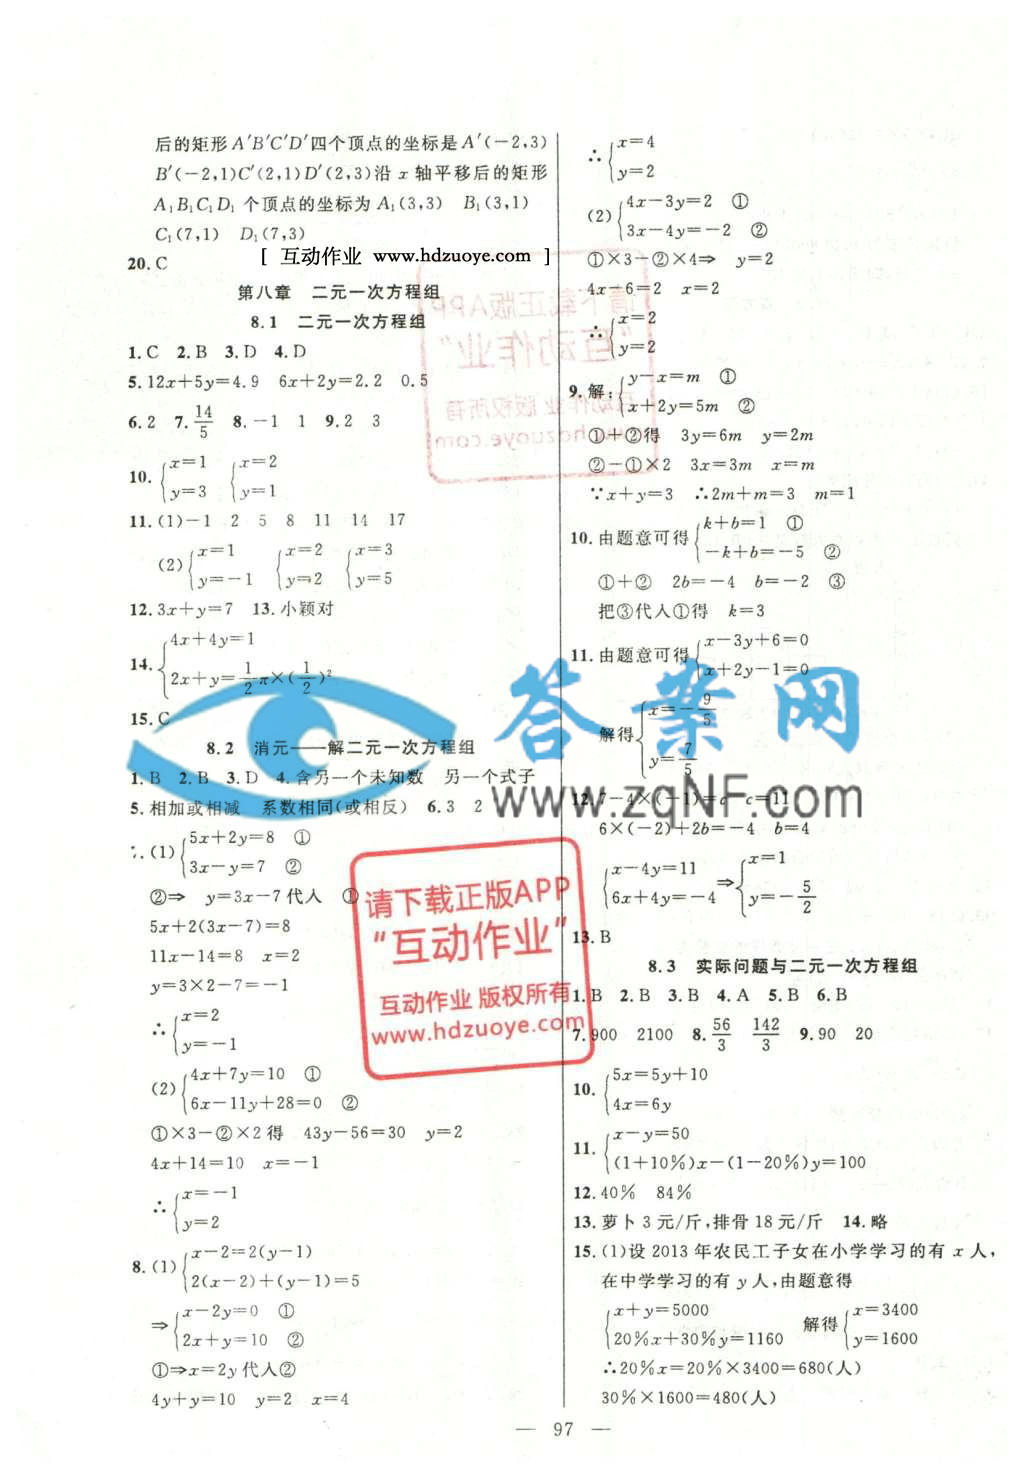 后的矩形A′B′C′D′四个顶点的坐标是A′(-2,3)
B′(-2,1)C′(2,1)D′(2,3)沿 x 轴平移后的矩形
A₁B₁C₁D₁ 个顶点的坐标为A₁(3,3) B₁(3,1)
C₁(7,1) D₁(7,3)
20.C
[ 互动作业 www.hdzuoye.com ]
第八章 二元一次方程组
8.1 二元一次方程组
1.C 2.B 3.D 4.D
5.12x+5y=4.9 6x+2y=2.2 0.5
6.2 7.14/5 8.-1 1 9.2 3
10.{x=1 {x=2
y=3 y=1
11.(1)-1 2 5 8 11 14 17
(2){x=1 {x=2 {x=3
y=-1 y=2 y=5
12.3x+y=7 13.小颖对
14.{4x+4y=1
2x+y=1/2π×(1/2)²
15.C
8.2 消元——解二元一次方程组
1.B 2.B 3.D 4.含另一个未知数 另一个式子
5.相加或相减 系数相同(或相反) 6.3 2
7.(1){5x+2y=8 ①
3x-y=7 ②
②⇒ y=3x-7代人 ①
5x+2(3x-7)=8
11x-14=8 x=2
y=3×2-7=-1
∴{x=2
y=-1
(2){4x+7y=10 ①
6x-11y+28=0 ②
①×3-②×2得 43y-56=30 y=2
4x+14=10 x=-1
∴{x=-1
y=2
8.(1){x-2=2(y-1)
2(x-2)+(y-1)=5
⇒{x-2y=0 ①
2x+y=10 ②
①⇒x=2y代人②
4y+y=10 y=2 x=4
∴{x=4
y=2
(2){4x-3y=2 ①
3x-4y=-2 ②
①×3-②×4⇒ y=2
4x-6=2 x=2
∴{x=2
y=2
9.解:{y-x=m ①
x+2y=5m ②
①+②得 3y=6m y=2m
②-①×2 3x=3m x=m
∵x+y=3 ∴2m+m=3 m=1
10.由题意可得{k+b=1 ①
-k+b=-5 ②
①+② 2b=-4 b=-2 ③
把③代人①得 k=3
11.由题意可得{x-3y+6=0
x+2y-1=0
解得{x=-9/5
y=7/5
12.7-4×(-1)=c c=11
6×(-2)+2b=-4 b=4
{x-4y=11 ⇒{x=1
6x+4y=-4 y=-5/2
13.B
8.3 实际问题与二元一次方程组
1.B 2.B 3.B 4.A 5.B 6.B
7.900 2100 8.56/3 142/3 9.90 20
10.{5x=5y+10
4x=6y
11.{x-y=50
(1+10%)x-(1-20%)y=100
12.40% 84%
13.萝卜3元/斤,排骨18元/斤 14.略
15.(1)设2013年农民工子女在小学学习的有 x 人,
在中学学习的有 y 人,由题意得
{x+y=5000 解得{x=3400
20%x+30%y=1160 y=1600
∴20%x=20%×3400=680(人)
30%×1600=480(人)
— 97 —
答案网
www.zqNF.com
请下载正版APP
“互动作业”
互动作业 版权所有
www.hdzuoye.com
请下载正版APP
“互动作业”
互动作业 版权所有
www.hdzuoye.com